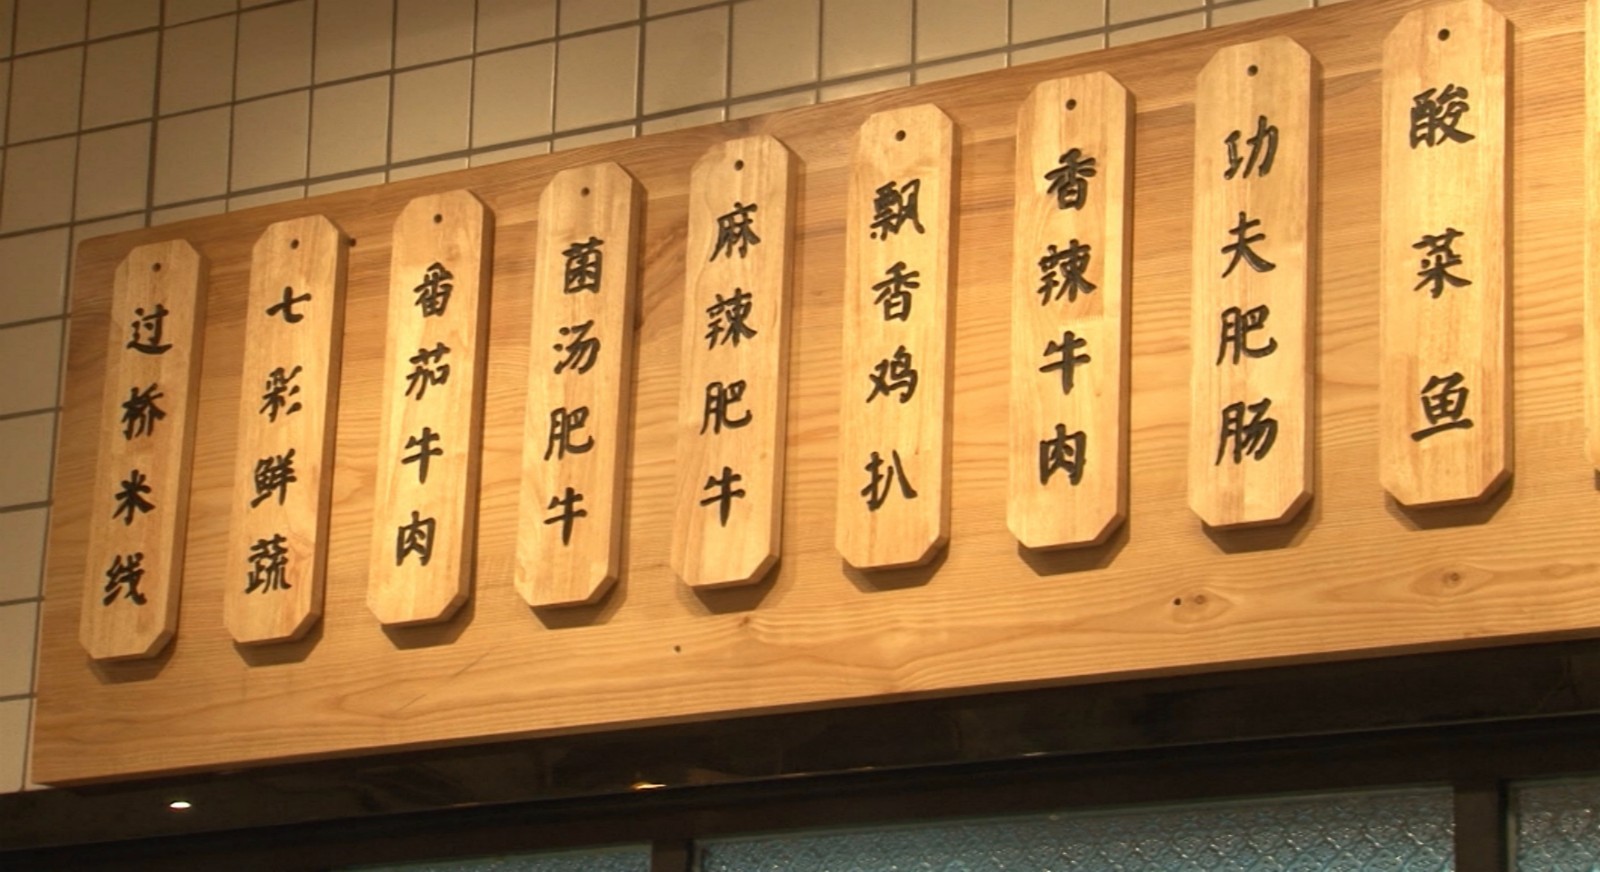 过桥米线
七彩鲜蔬
番茄牛肉
菌汤肥牛
麻辣肥牛
飘香鸡扒
香辣牛肉
功夫肥肠
酸菜鱼